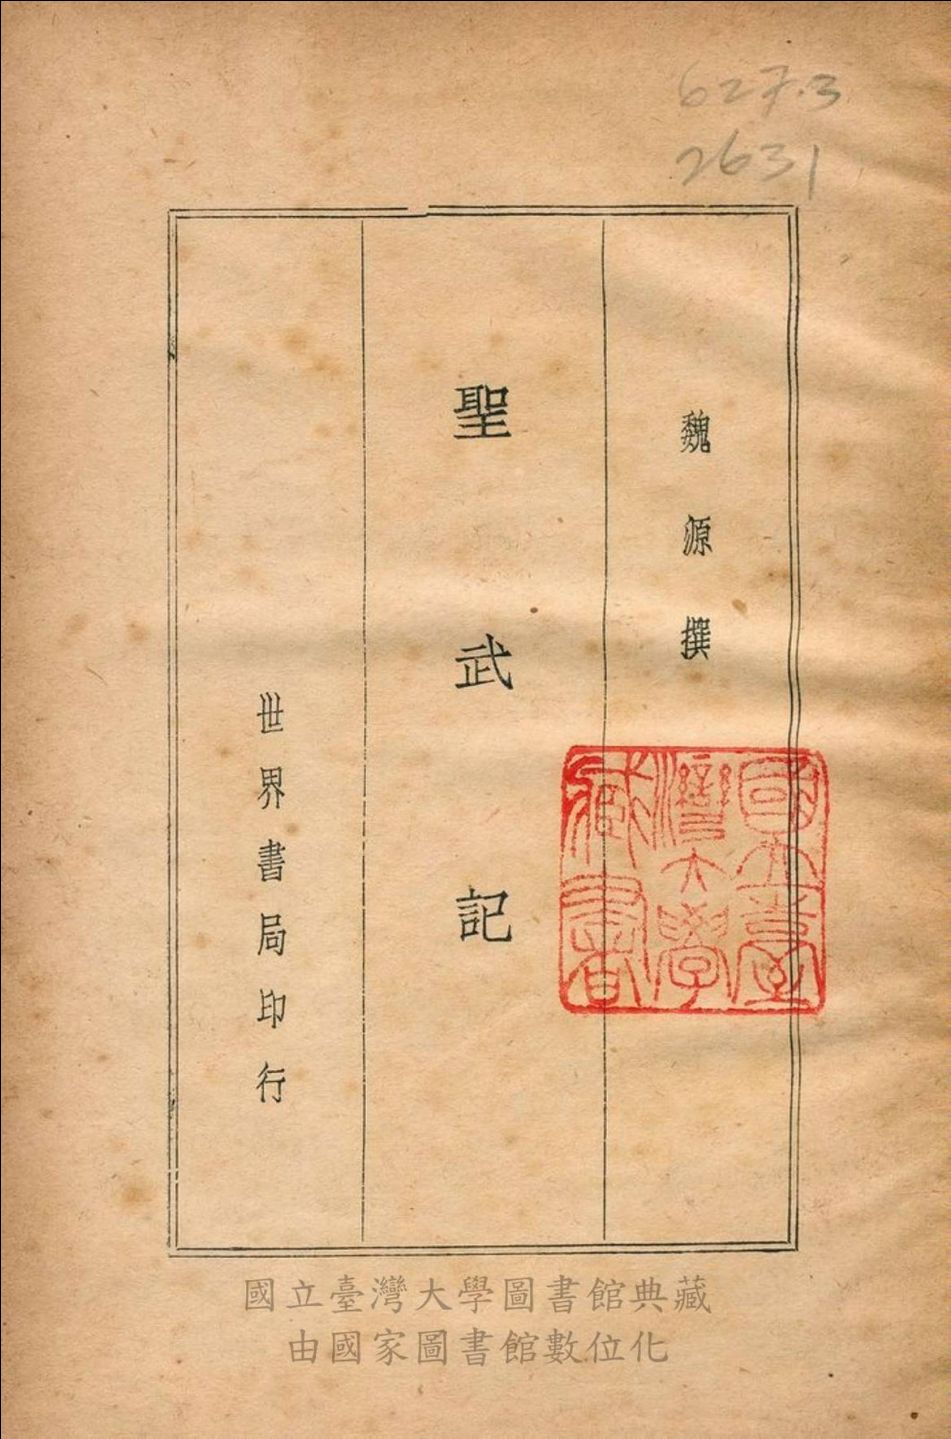 627.3
2631
魏源撰
聖武記
世界書局印行
國立臺灣大學藏書
國立臺灣大學圖書館典藏
由國家圖書館數位化